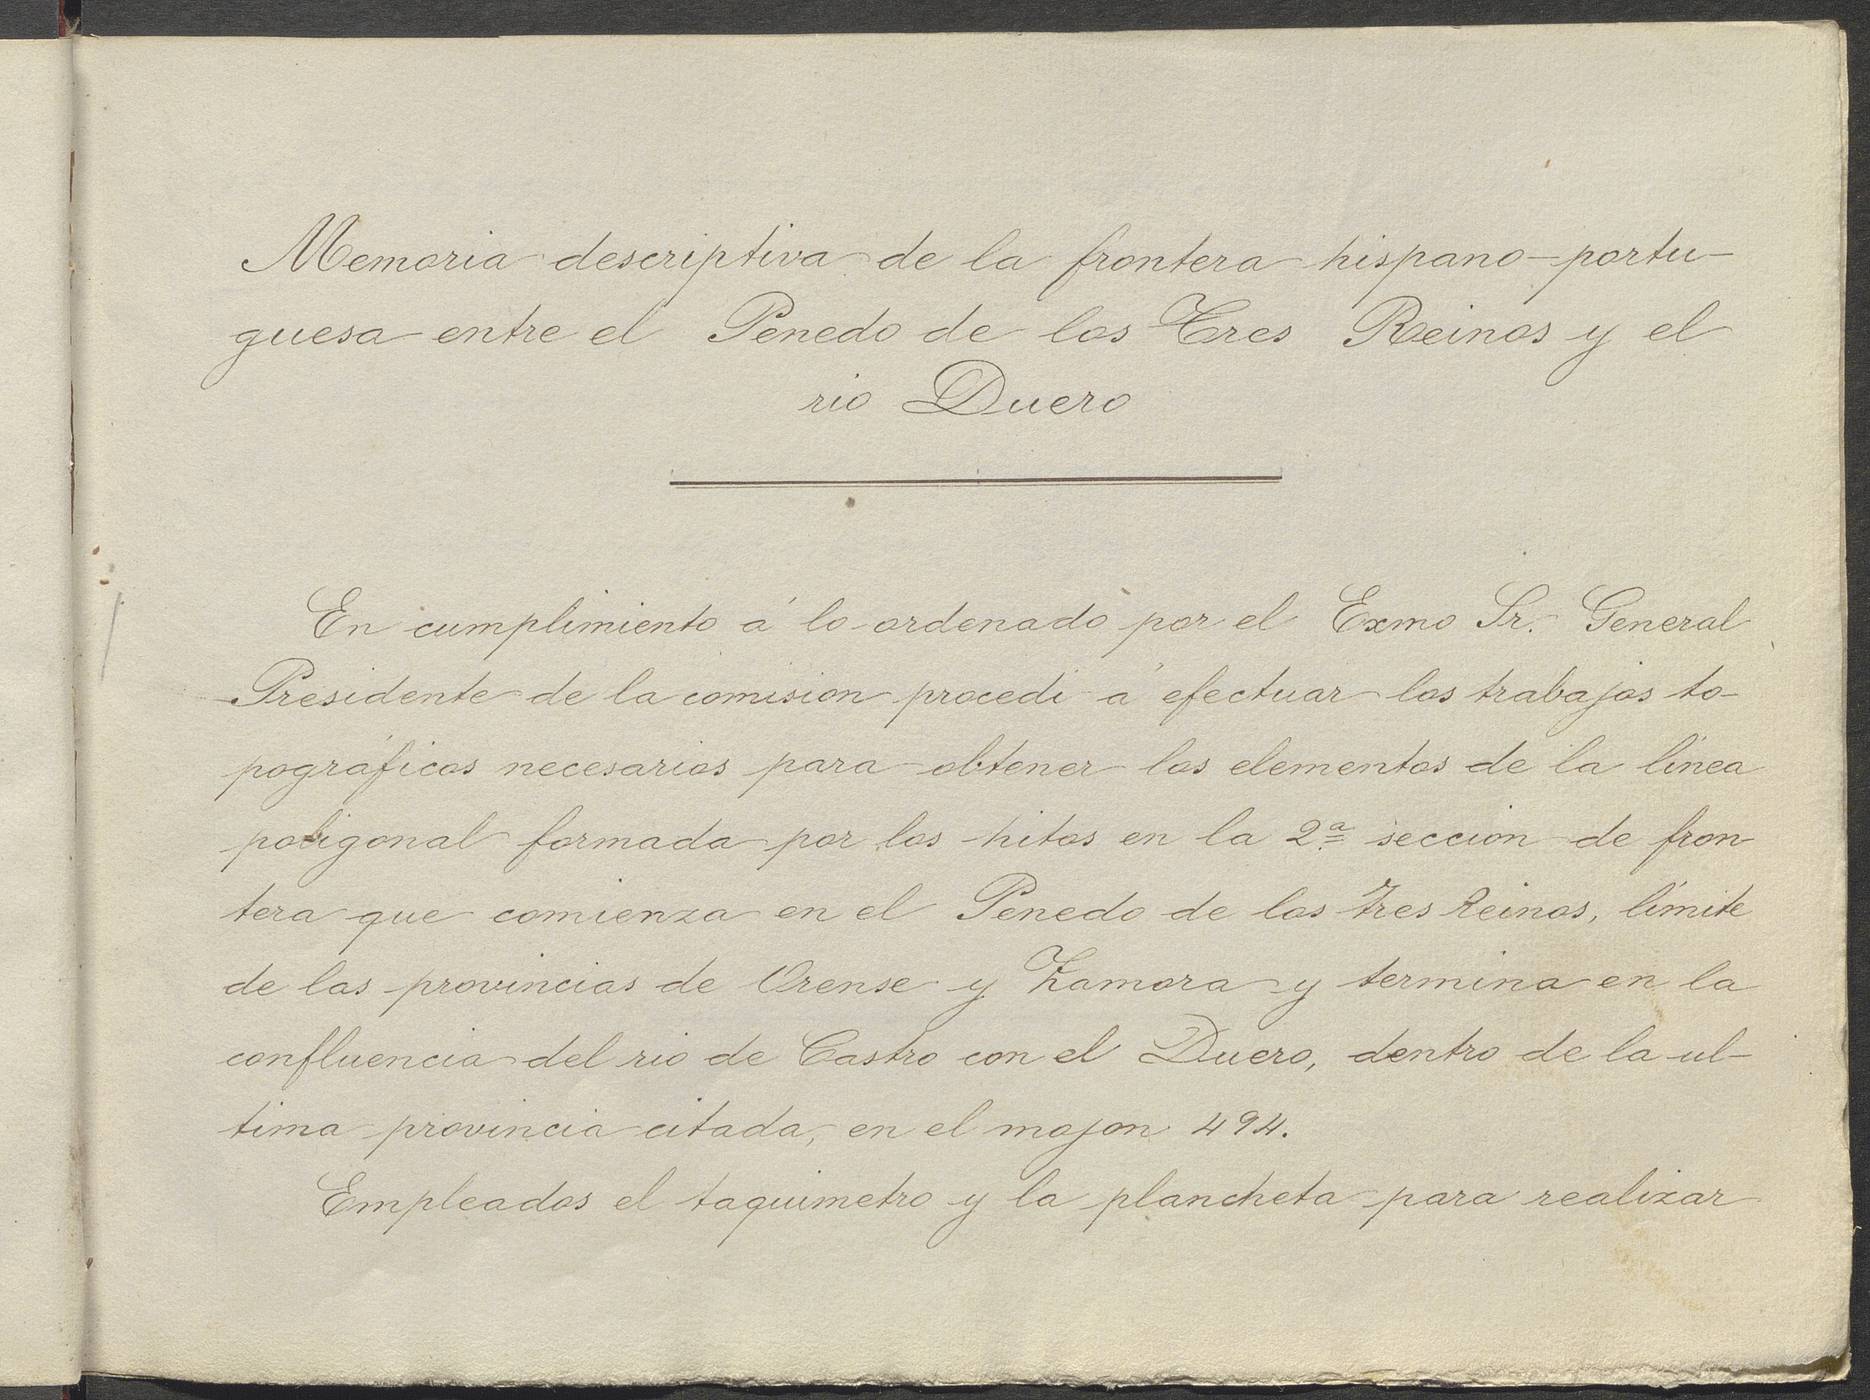 Memoria descriptiva de la frontera hispano-portu-
guesa entre el Penedo de los Tres Reinos y el
rio Duero
En cumplimiento á lo ordenado por el Exmo Sr. General
Presidente de la comision procedi á efectuar los trabajos to-
pográficos necesarios para obtener los elementos de la línea
poligonal formada por los hitos en la 2.ª seccion de fron
tera que comienza en el Penedo de los Tres Reinos, límite
de las provincias de Orense y Zamora y termina en la
confluencia del rio de Castro con el Duero, dentro de la ul-
tima provincia citada, en el mojon 494.
Empleados el taquimetro y la plancheta para realizar